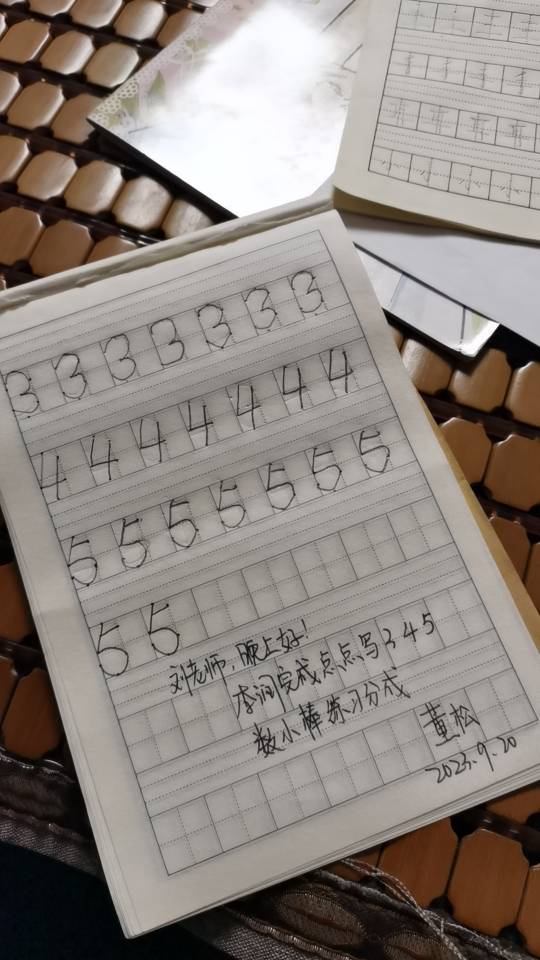 3 3 3 3 3 3 3
4 4 4 4 4 4 4
5 5 5 5 5 5 5
5 5
刘老师,晚上好!
李润完成点点写345
数小棒练习分成
董松
2023.9.20